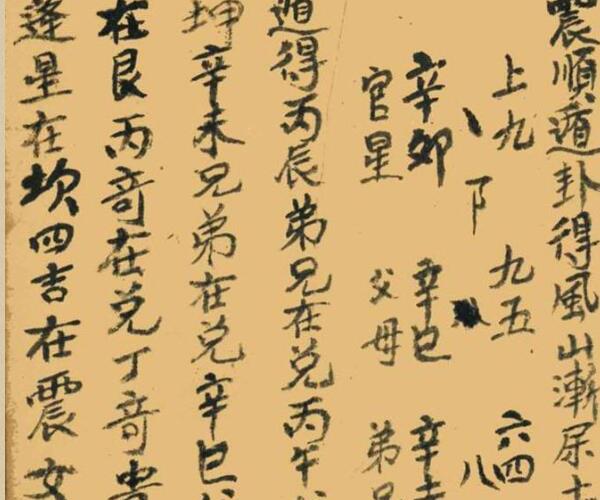 震順遁卦得風山漸
上九 九五 六四
丶 丅 八
辛卯 辛巳 辛
官星 父母 弟
遁得丙辰弟兄在兑丙午
坤辛未兄弟在兑辛巳
在艮丙奇在兑丁奇
逢星在坎四吉在震女